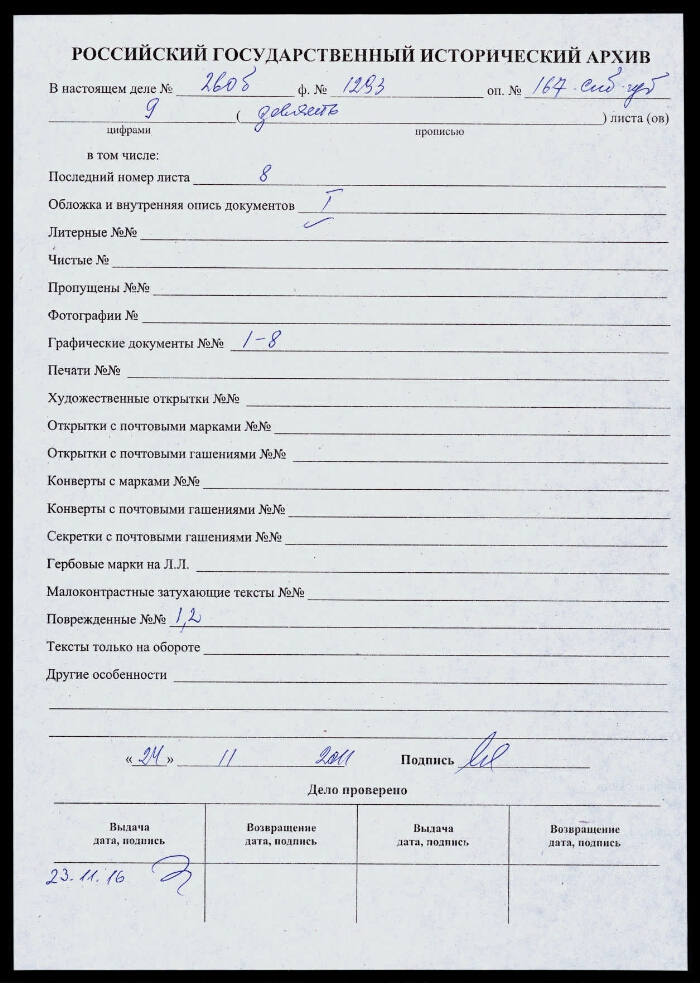 РОССИЙСКИЙ ГОСУДАРСТВЕННЫЙ ИСТОРИЧЕСКИЙ АРХИВ
В настоящем деле № 260б ф. № 1293 оп. № 167 спб. губ
9 ( девять ) листа (ов)
цифрами прописью
в том числе:
Последний номер листа 8
Обложка и внутренняя опись документов I
Литерные №№
Чистые №
Пропущены №№
Фотографии №
Графические документы №№ 1-8
Печати №№
Художественные открытки №№
Открытки с почтовыми марками №№
Открытки с почтовыми гашениями №№
Конверты с марками №№
Конверты с почтовыми гашениями №№
Секретки с почтовыми гашениями №№
Гербовые марки на Л.Л.
Малоконтрастные затухающие тексты №№
Поврежденные №№ 1,2
Тексты только на обороте
Другие особенности
« 24 » 11 2011 Подпись
Дело проверено
Выдача Возвращение Выдача Возвращение
дата, подпись дата, подпись дата, подпись дата, подпись
23.11.16